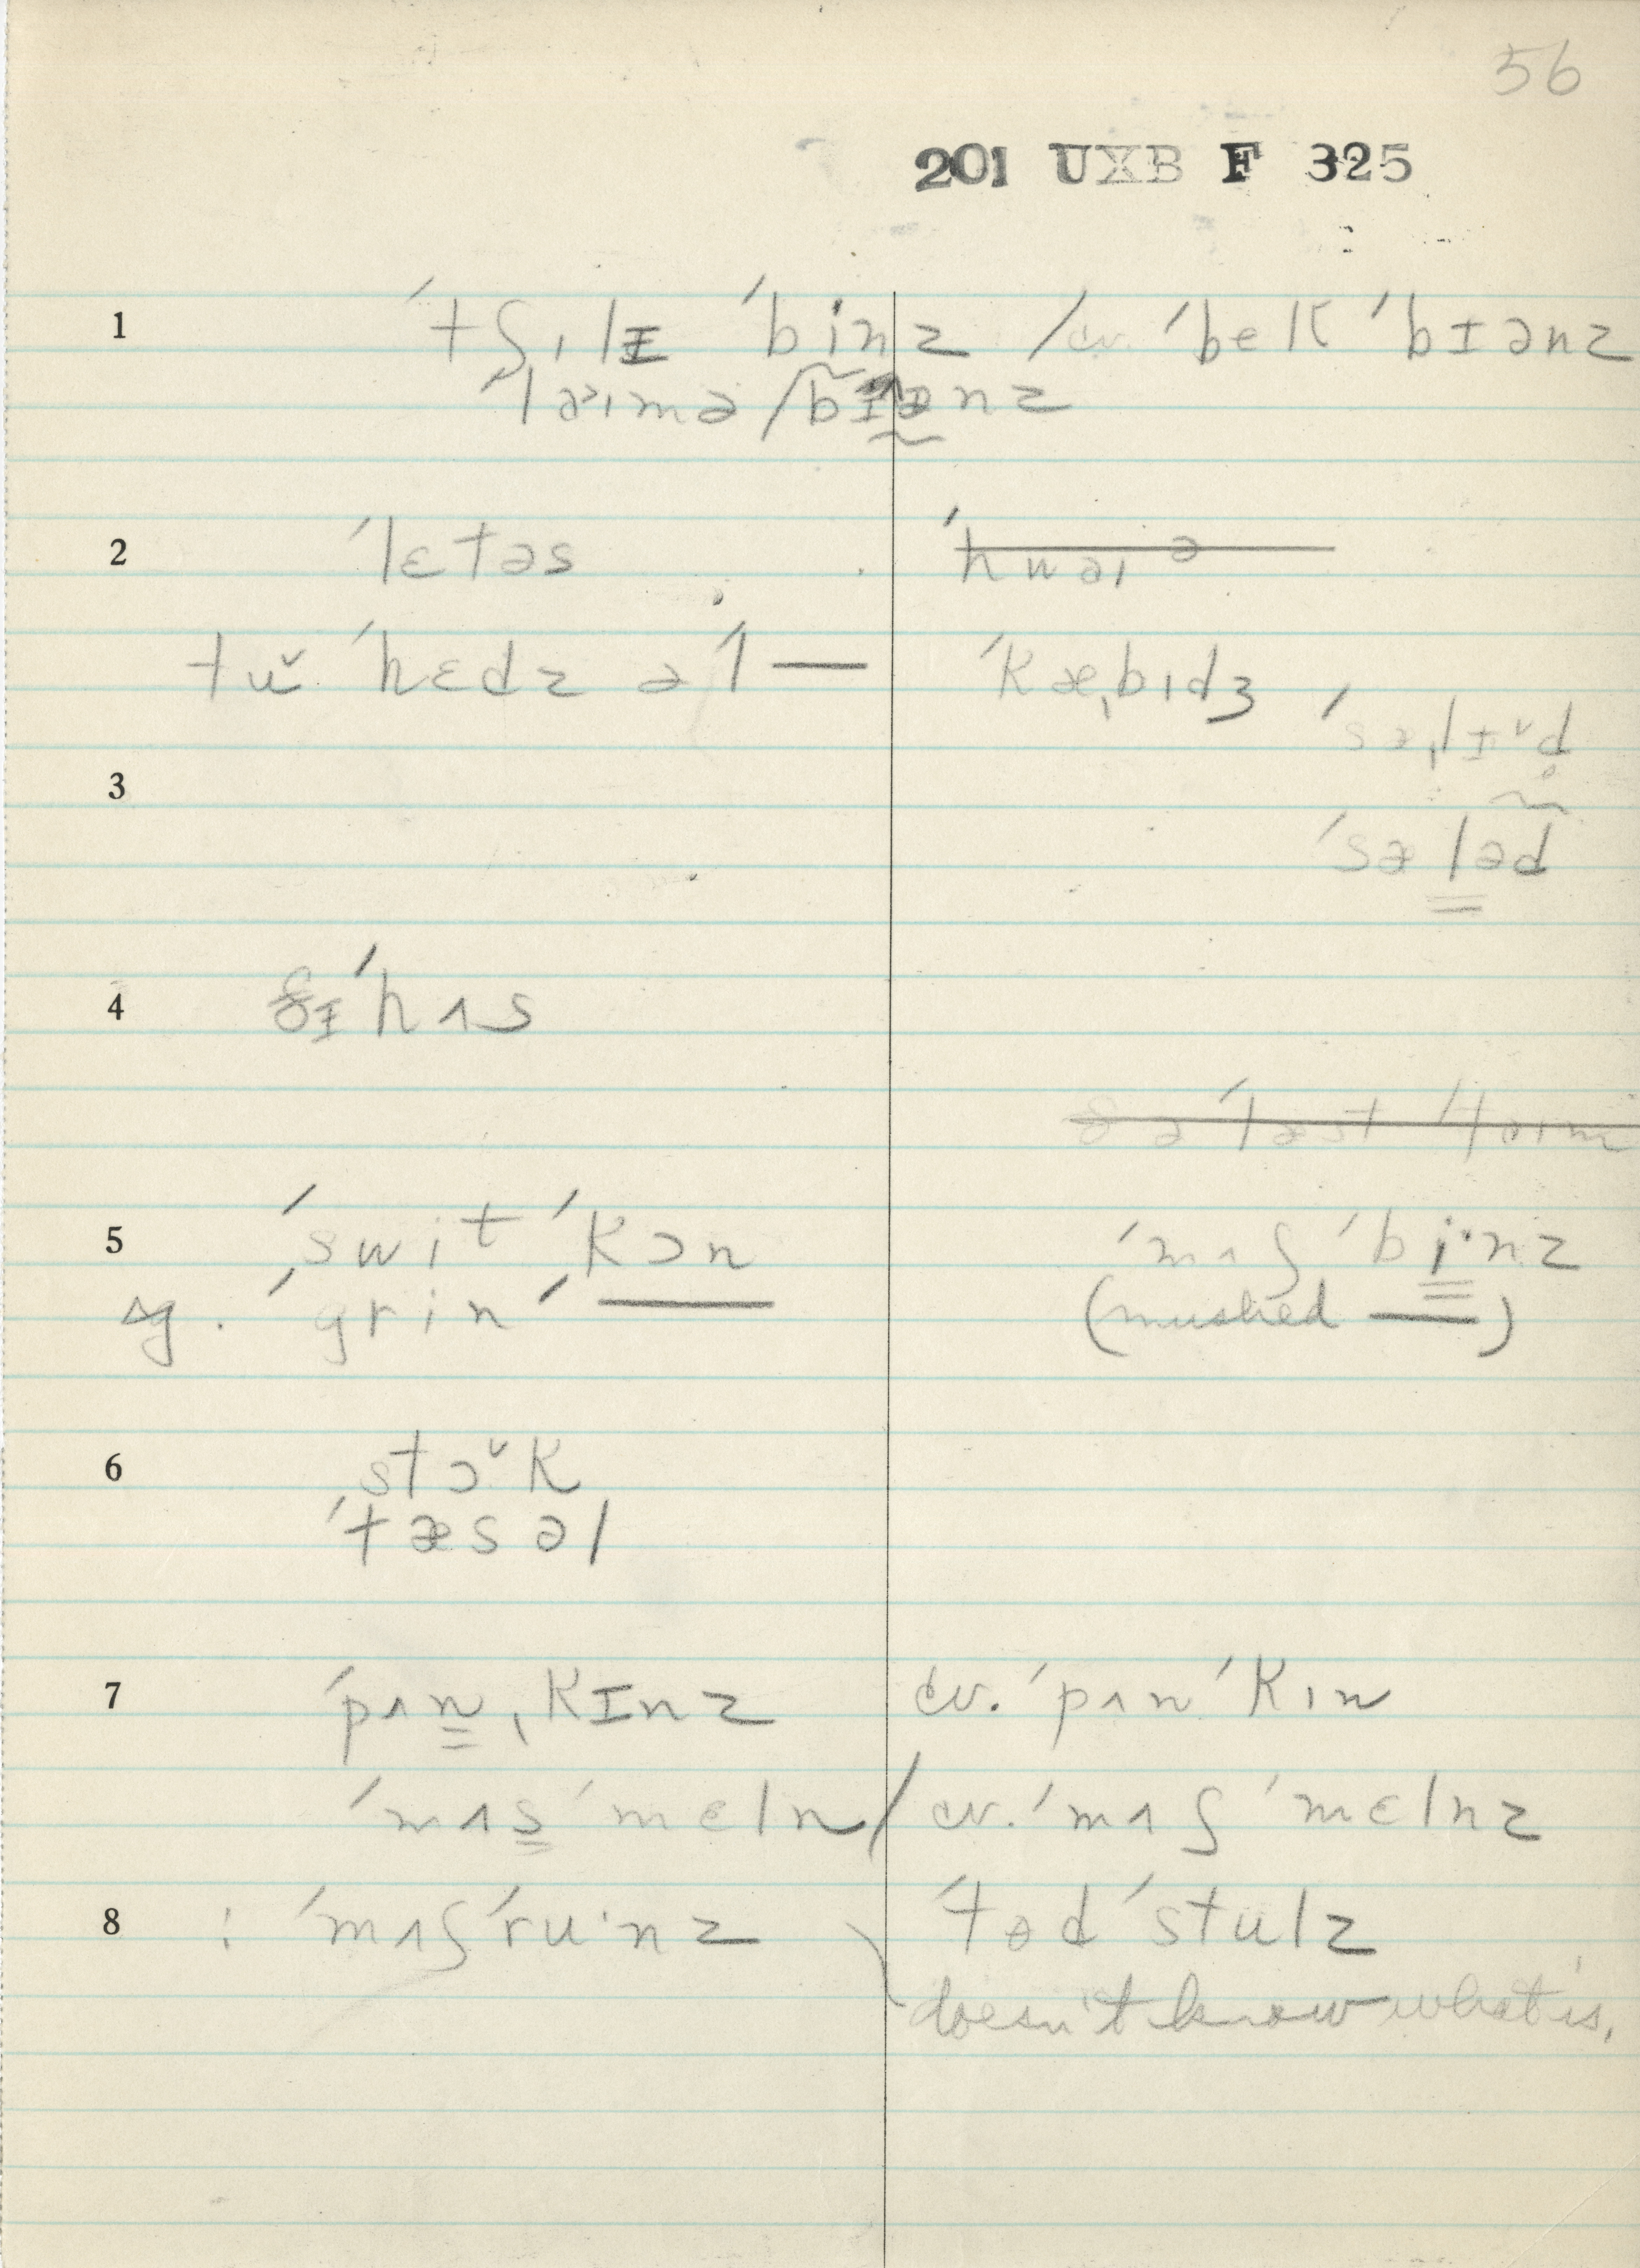 56
201 UXB F 325
1 ˈtʃɪˌlɪ ˈbinz / cv. ˈbek ˈbɪənz
ˈlaɪmə / bɪənz
2 ˈlɛtəs ˈhwaɪə
tŭ ˈhɛdz əˈl — ˈkæˌbɪdʒ
ˈsæˌlɪ̆d
3
ˈsæləd
4 ðɪ ˈhʌs
ðə ˈlæst ˈtaɪm
5 ˈswit ˈkɔn ˈmʌʃ ˈbi·nz
sg. ˈgrin ˈ— (mushed —)
6 stɔ̆k
ˈtæsəl
7 ˈpʌnˌkɪnz cv. ˈpʌn ˈkɪn
ˈmʌs ˈmɛln / cv. ˈmʌʃ ˈmɛlnz
8 : ˈmʌʃˈru·nz ˈtod ˈstulz
doesn't know what is.